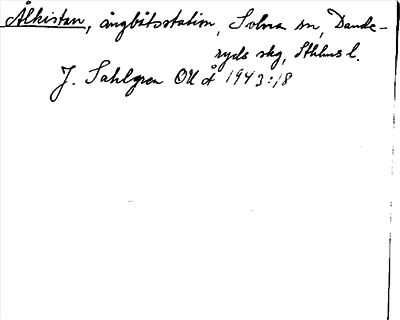 Ålkistan, ångbåtsstation, Solna sn, Dande-
ryds skg, Sthlms l.
J. Sahlgren OUÅ 1943:18